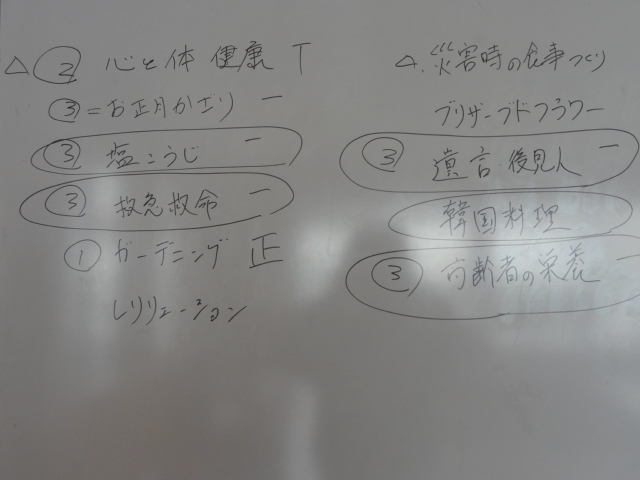 △ ② 心と体 健康 T
③=お正月かざり 一
③ 塩こうじ 一
③ 救急救命 一
① ガーデニング 正
レリリェーション
△. 災害時の食事づくり
ブリザーブドフラワー
③ 遺言・後見人 一
韓国料理
③ 高齢者の栄養 一